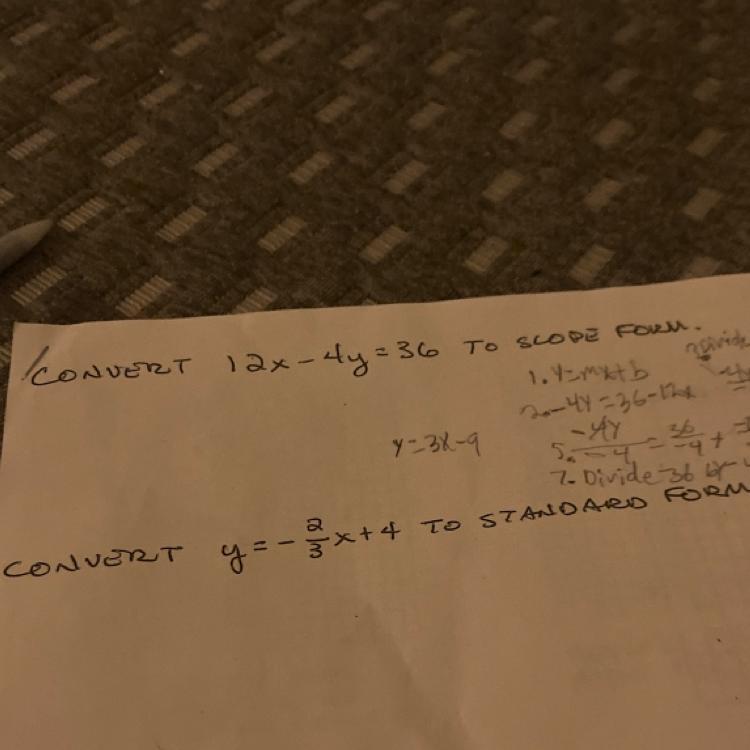 CONVERT 12x - 4y = 36 TO SLOPE FORM.
1. Y=mx+b
2. -4Y = 36-12x
y = 3x - 9
5. -4Y/-4 = 36/-4 +
7. Divide 36 by
CONVERT y = -2/3x + 4 TO STANDARD FORM